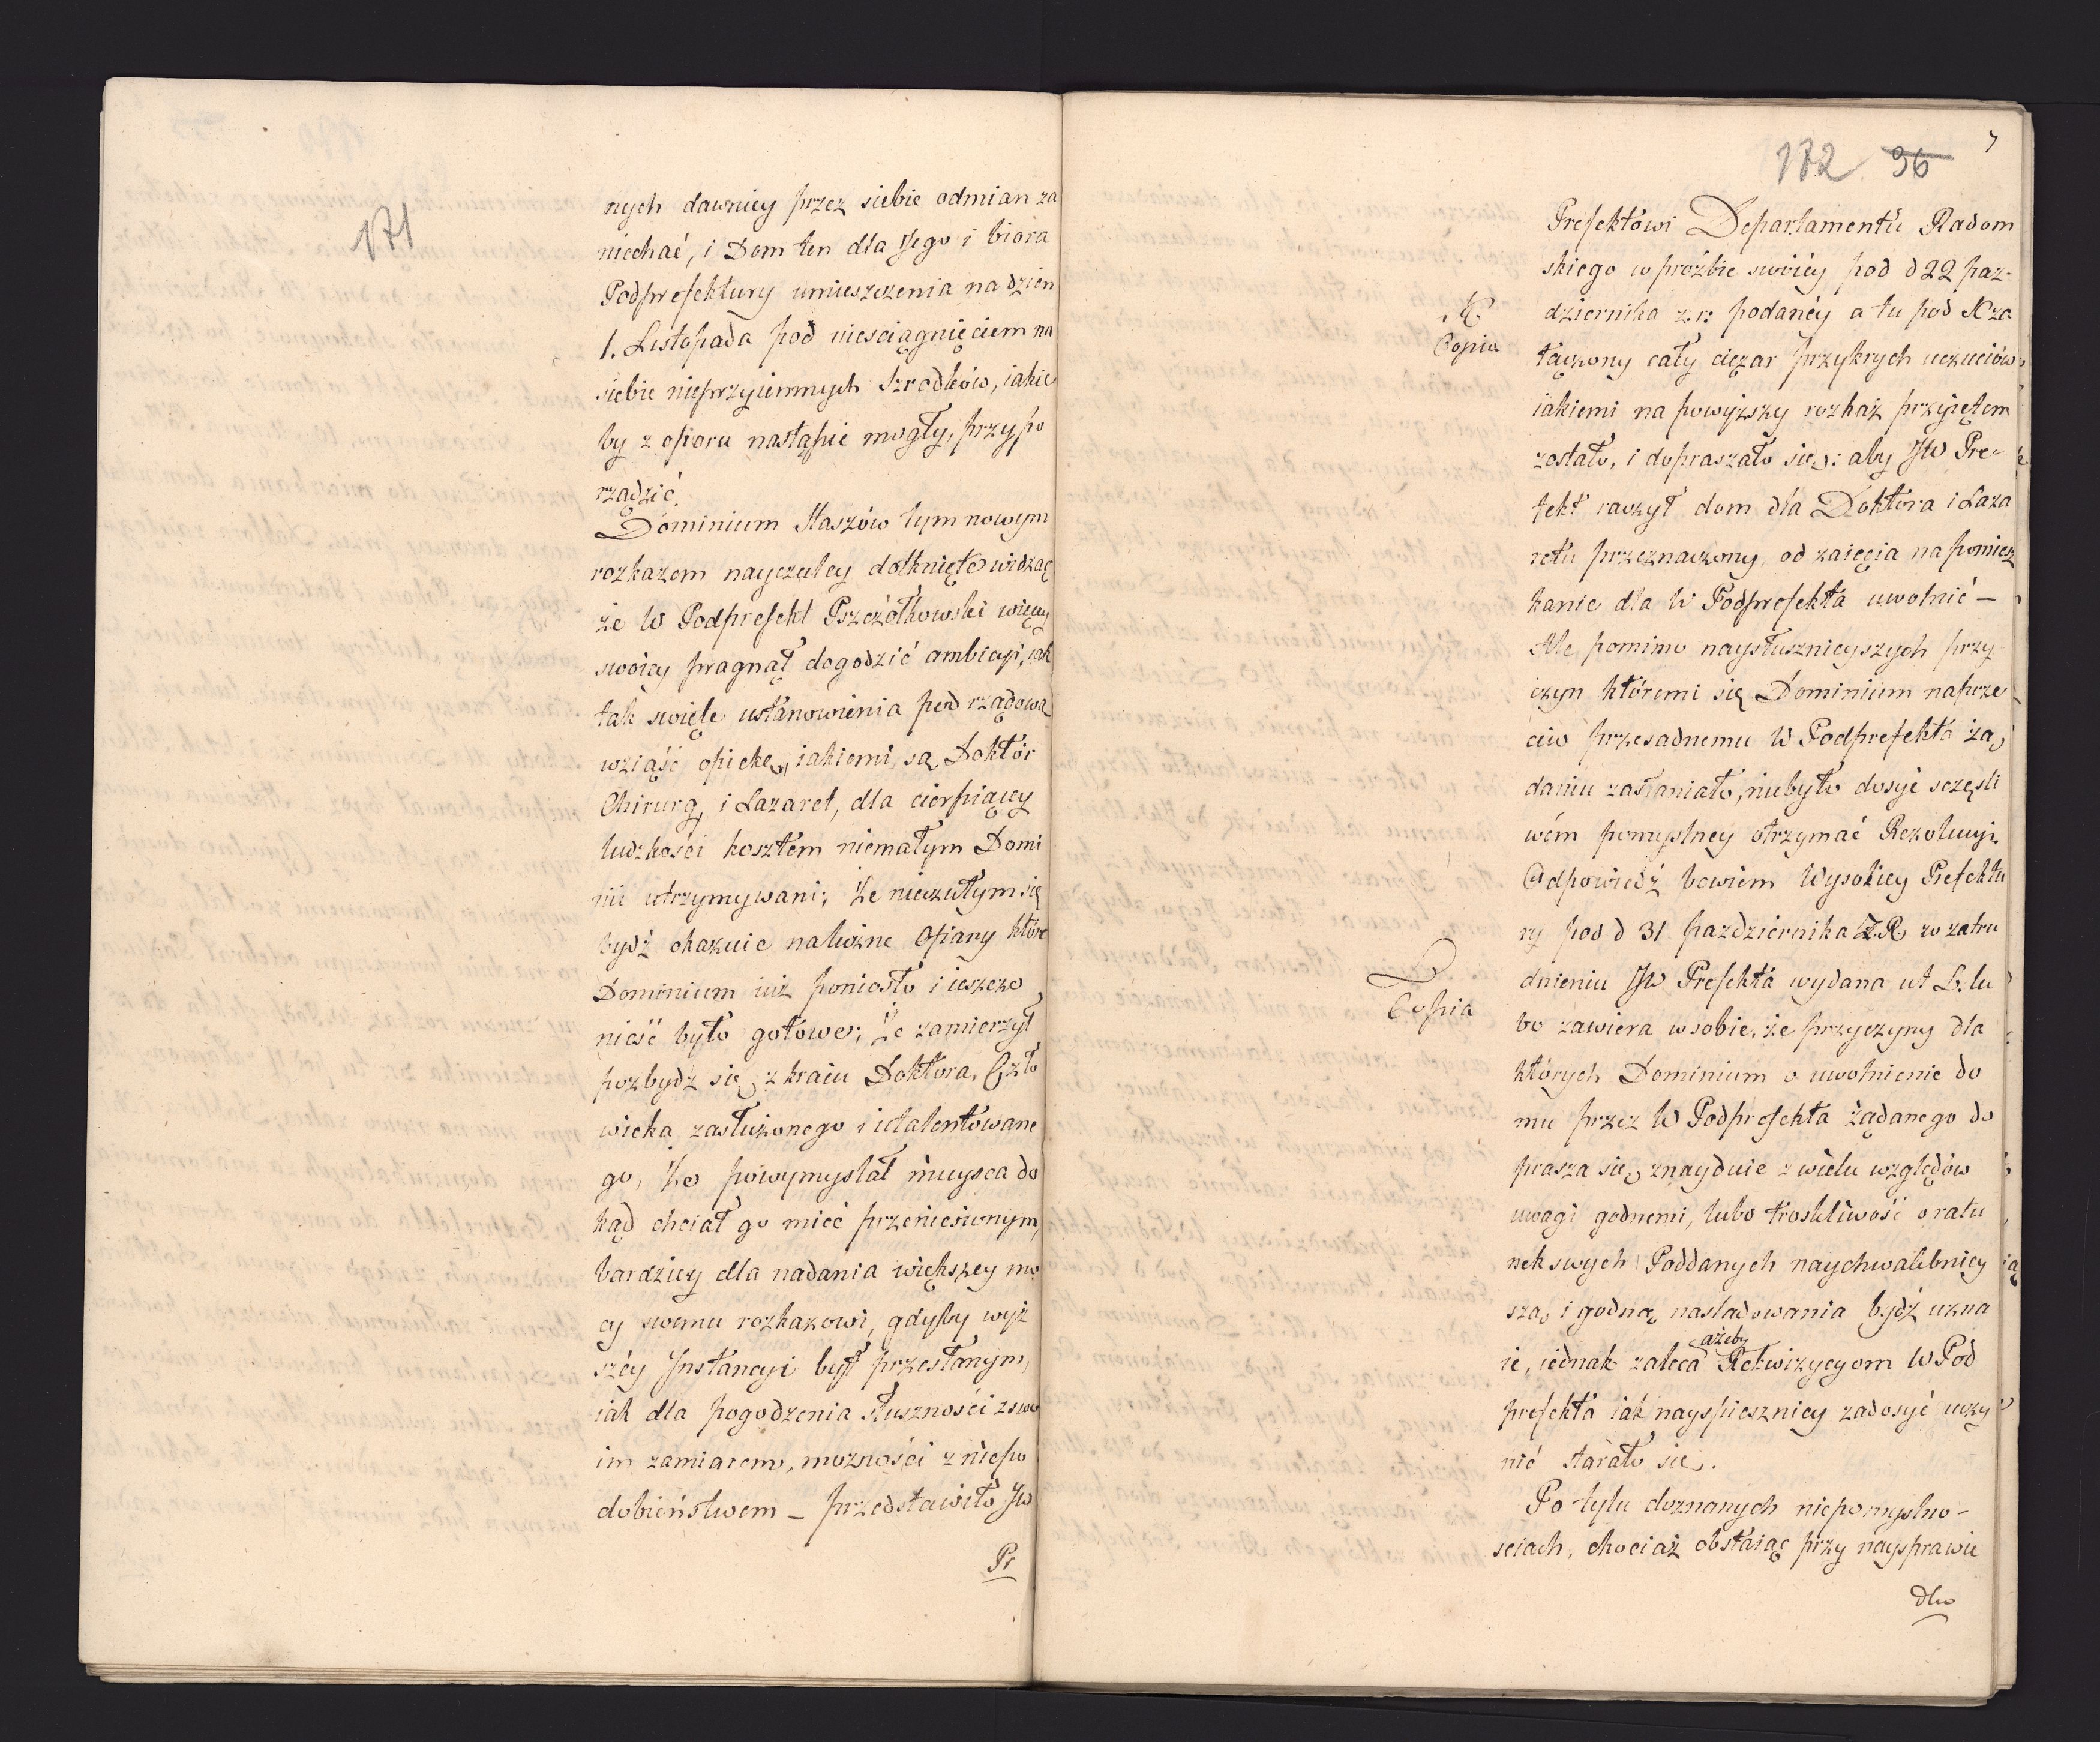 171
nych dawniey przez siebie odmian za
niechać, i Dom ten dla Jego i biora
Podprefektury umieszczenia na dzien
1. Listopada pod niesciągnięciem na
siebie nieprzyiemnych szrodków, iakie
by z oporu nastąpić mogły, przypo
rządzić.
Dominium Staszów tym nowym
rozkazem nayczuley dotknięte widząc
że W Podprefekt Pszczółkowski więcey
swoiey pragnął dogodzić ambicyi, iak
tak swięte ustanowienia pod rządową
wziąść opiekę, iakiemi są Doktór
Chirurg, i Lazaret, dla cierpiącey
ludzkości kosztem niemałym Domi
nii utrzymywani; że nieczułym się
bydź okazuie na liczne Ofiary które
Dominium iuż poniosło i ieszcze
nieść było gotowe; że zamierzył
pozbydz się z kraiu Doktora, Czło
wieka zasłużonego i utalentowane
go, że powymyslał mieysca do
kąd chciał go mieć przeniesionym,
bardziey dla nadania większey mo
cy swemu rozkazowi, gdyby wyż
széy Jnstancyi był przesłanym,
iak dla pogodzenia słuszności z swo
im zamiarem, możności z niepo
dobieństwem – przedstawiło JW
Pr
7
172 96
Prefektówi Departamentu Radom
skiego w proźbie swoiéy pod d 22 paz-
dziernika z. r: podanéy a tu pod K za
K
Copia
łączony cały ciężar przykrych uczuciów
iakiemi na powyższy rozkaz przyiętem
zostało, i dopraszało się: aby JW Pre-
fekt raczył dom dla Doktora i Laza
retu przeznaczony, od zaięcia na pomiesz
kanie dla W Podprefekta uwolnić –
Ale pomimo naysłusznieyszych przy
czyn któremi się Dominium naprze
ciw przesadnemu W Podprefekta żą
daniu zasłaniało, niebyło dosyć szczęśli
wém pomyslney otrzymać Rezolucyi.
Odpowiedź bowiem Wysokiey Prefektu
ry pod d 31 pazdziernika Z.R. w zatru
dnieniu JW Prefekta wydana ut L. lu
L
Copia
bo zawiera w sobie, że przyczyny dla
których Dominium o uwolnienie do
mu przez W Podprefekta żądanego do
prasza się, znayduie z wielu względów
uwagi godnemi, lubo troskliwość o ratu
nek swych Poddanych naychwalebniey
szą, i godną nasladowania bydź uzna
ie, iednak zaleca ażeby Rekwizycyom W Pod
prefekta iak nayspieszniey zadosyć uczy
nić starało się.
Po tylu doznanych niepomyslno-
sciach, chociaż obstaiąc przy naysprawie
dli